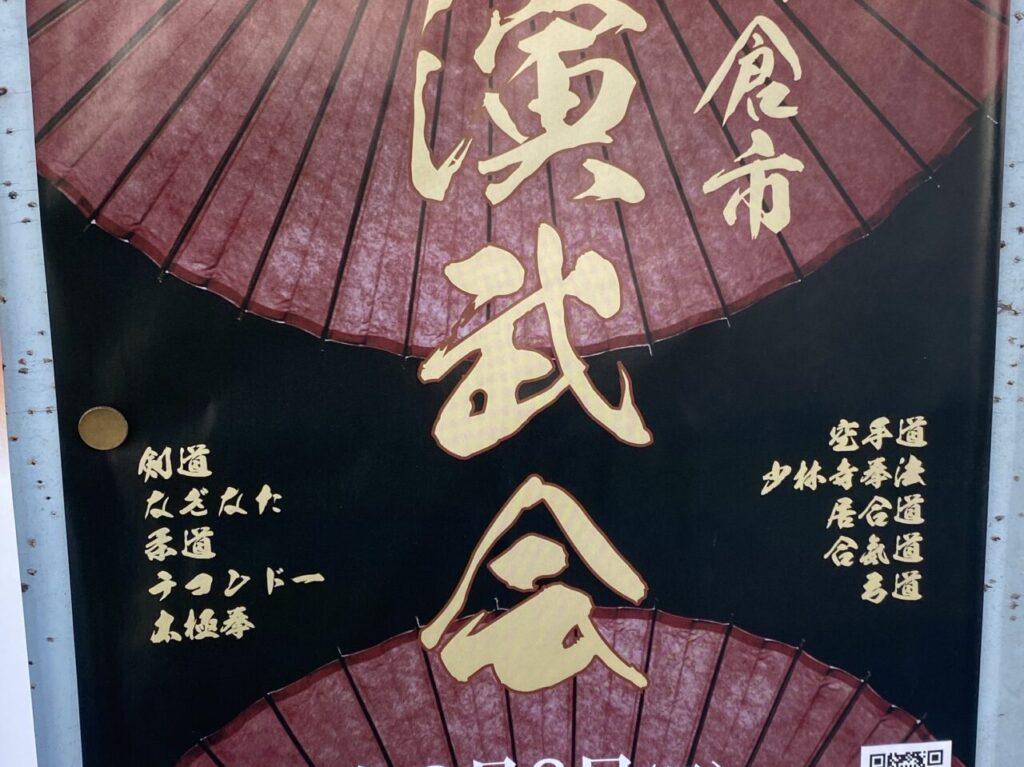 倉市
演武会
空手道
少林寺拳法
居合道
合氣道
弓道
剣道
なぎなた
柔道
テコンドー
太極拳